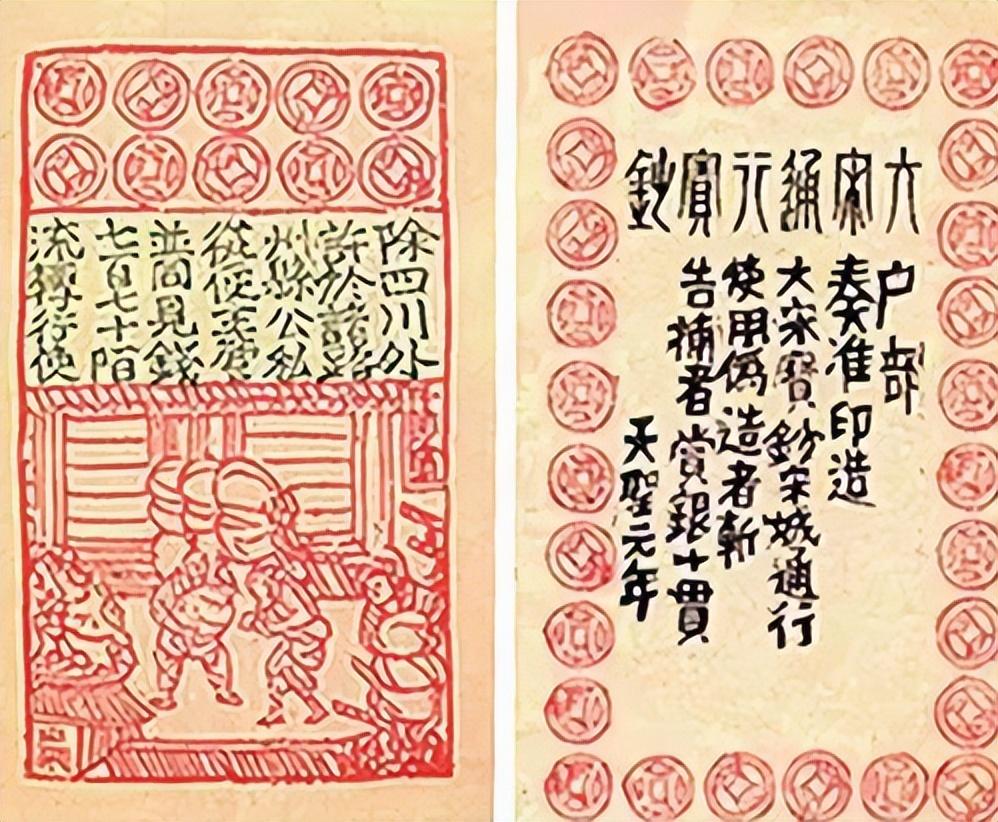 除四川外
許於諸路
州縣公私
從便主管
並同見錢
七百七十陌
流轉行使
大宋通行寶鈔
户部
奏准印造
大宋寶鈔宋城通行
使用偽造者斬
告捕者賞銀十貫
天聖元年